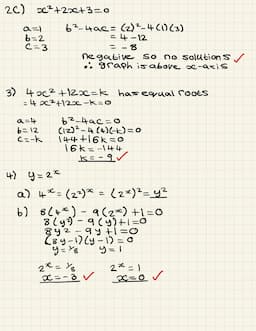 2c) x²+2x+3=0
a=1 b²-4ac = (2)²-4(1)(3)
b=2 = 4-12
c=3 = -8
negative so no solutions ✓
∴ graph is above x-axis
3) 4x²+12x=k has equal roots
=4x²+12x-k=0
a=4 b²-4ac=0
b=12 (12)²-4(4)(-k)=0
c=-k 144+16k=0
16k=-144
k=-9 ✓
4) y=2ˣ
a) 4ˣ=(2²)ˣ = (2ˣ)²=y²
b) 8(4ˣ) - 9(2ˣ)+1=0
8(y²)-9(y)+1=0
8y²-9y+1=0
(8y-1)(y-1)=0
y=⅛ y=1
2ˣ=⅛ 2ˣ=1
x=-3 ✓ x=0 ✓